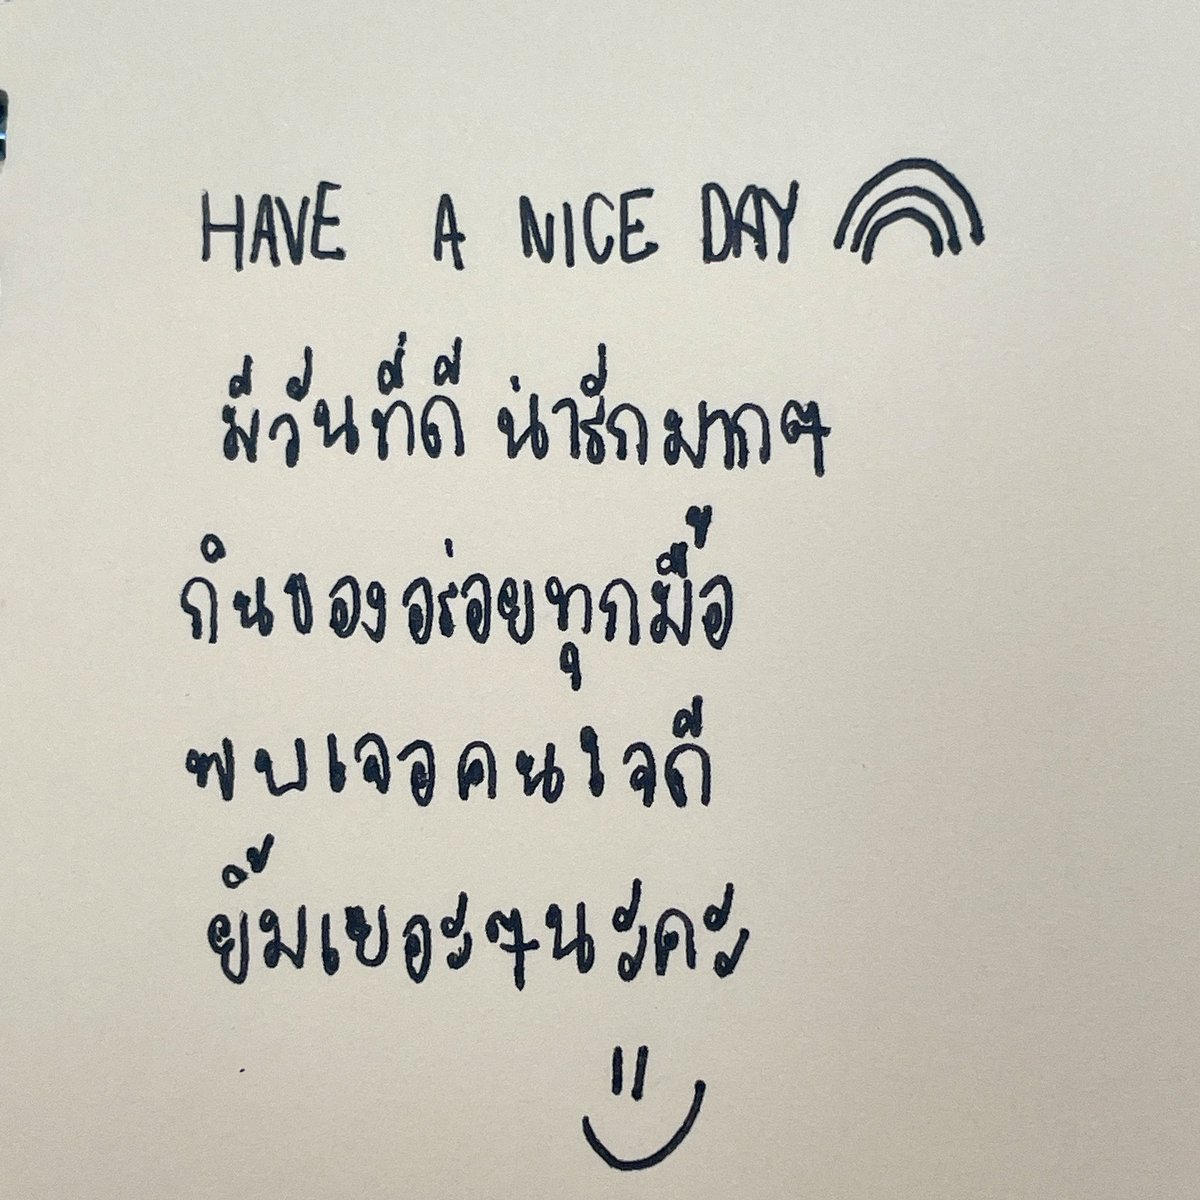 HAVE A NICE DAY
มีวันที่ดี น่ารักมากๆ
กินของอร่อยทุกมื้อ
พบเจอคนใจดี
ยิ้มเยอะๆนะคะ